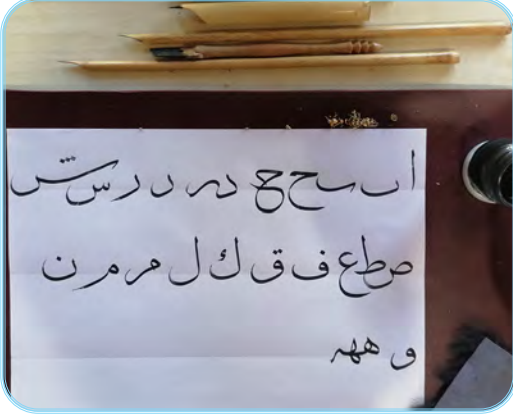 ا ب ح ج د ر د ر س ش
ص ط ع ف ق ك ل م م ن
و ههـ